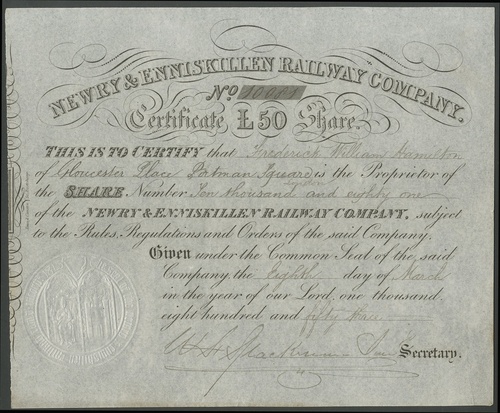 NEWRY & ENNISKILLEN RAILWAY COMPANY.
No 10081
Certificate £50 Share.
THIS IS TO CERTIFY that Frederick William Hamilton
of Gloucester Place Portman Square London is the Proprietor of
the SHARE Number Ten thousand and eighty one
of the NEWRY & ENNISKILLEN RAILWAY COMPANY, subject
to the Rules, Regulations and Orders of the said Company,
Given under the Common Seal of the said
Company, the Eighth day of March
in the year of our Lord, one thousand
eight hundred and fifty three
Secretary.